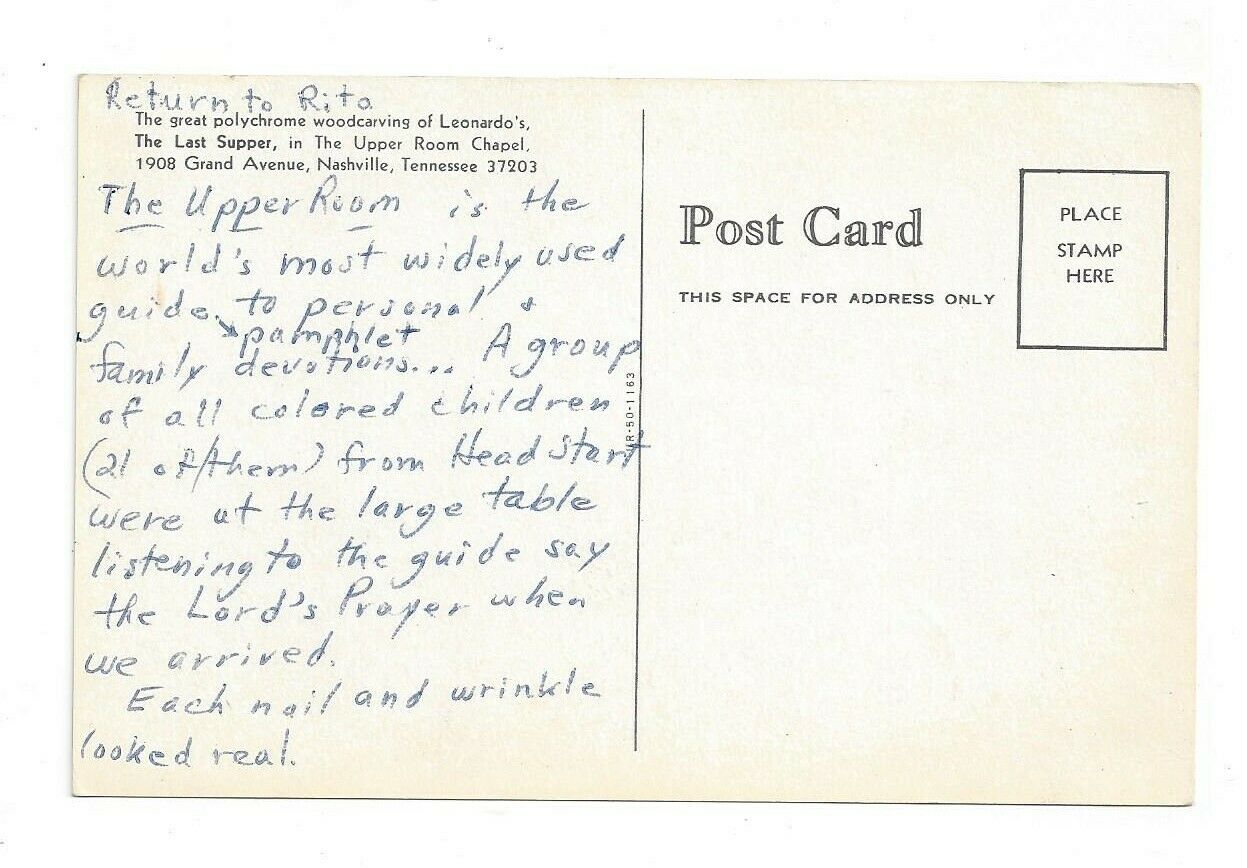 Return to Rita
The great polychrome woodcarving of Leonardo's,
The Last Supper, in The Upper Room Chapel,
1908 Grand Avenue, Nashville, Tennessee 37203
The Upper Room is the
world's most widely used
guide to personal +
pamphlet
family devotions... A group
of all colored children
(21 of them) from Head Start
were at the large table
listening to the guide say
the Lord's Prayer when
we arrived.
Each nail and wrinkle
looked real.
Post Card
THIS SPACE FOR ADDRESS ONLY
PLACE
STAMP
HERE
UR-50-1163